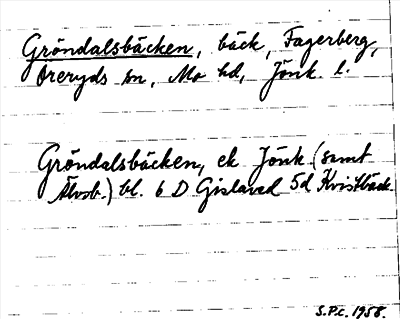 Gröndalsbäcken, bäck, Fagerberg,
Öreryds sn, Mo hd, Jönk. l.
Gröndalsbäcken, ek Jönk. (samt
Älvsb.) bl. 6 D Gislaved 5d Kvistbäck.
S.P.L. 1958.